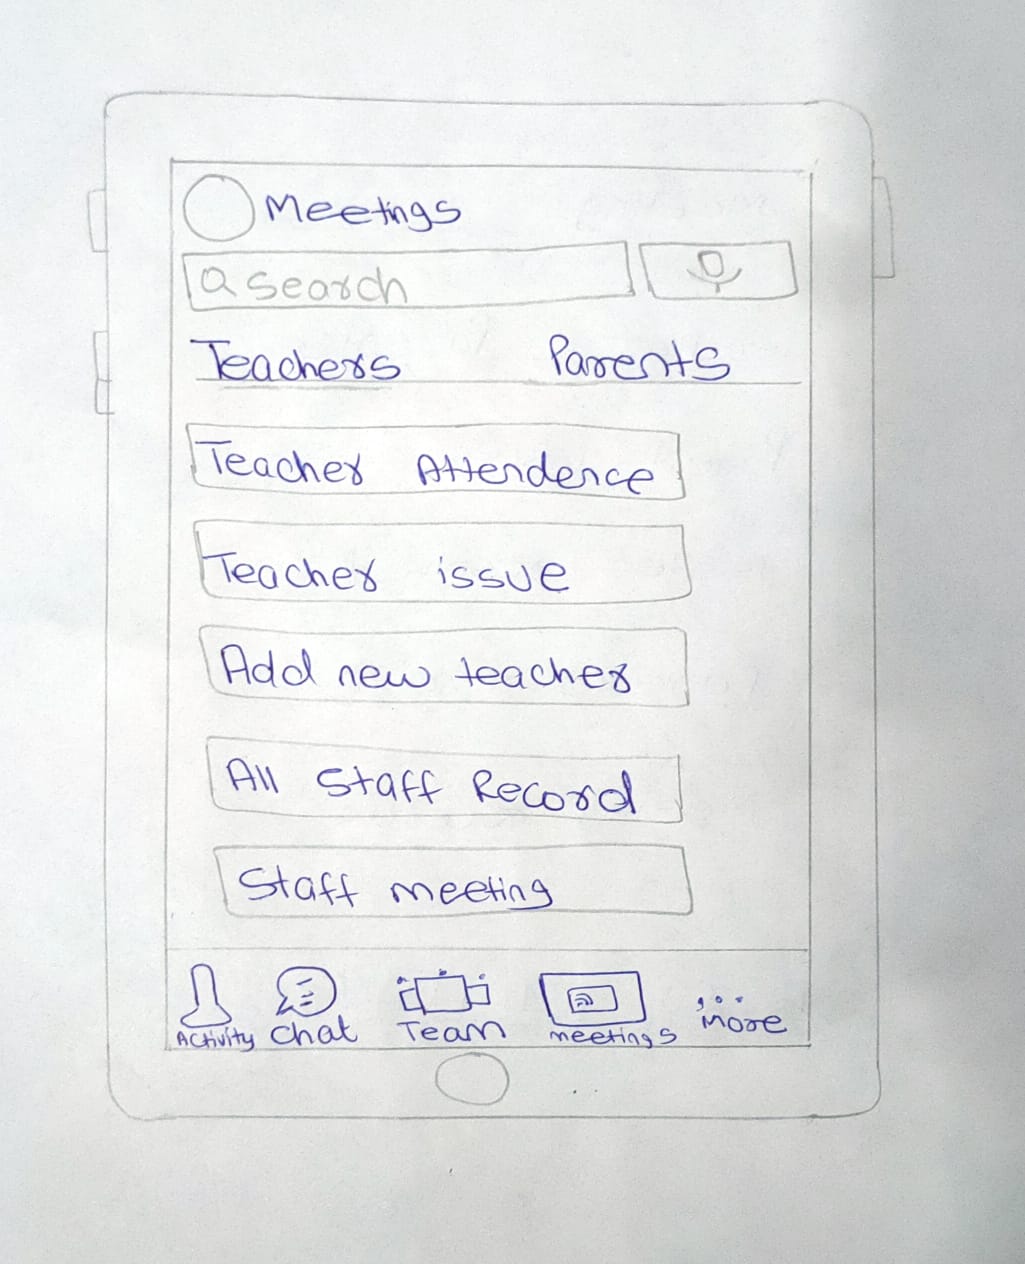 Meetings
Search
Teachers Parents
Teacher Attendence
Teacher issue
Add new teacher
All Staff Record
Staff meeting
Activity Chat Team meetings More